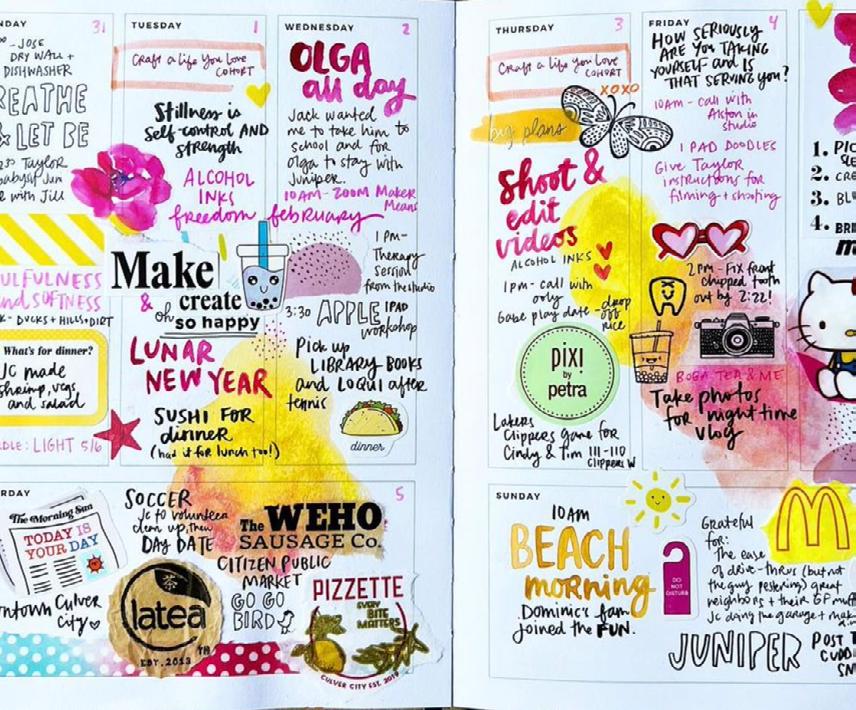 NDAY 31
- JOSE
DRY WALL +
DISHWASHER
REATHE
& LET BE
Taylor
babysit Juni
e with Jill
ULFULNESS
and SOFTNESS
K - DUCKS + HILLS + DIRT
What's for dinner?
JC made
shrimp, vegs
and salad
RDLE: LIGHT 5/6
TUESDAY 1
Craft a life you love
COHORT
Stillness is
self-control AND
strength
ALCOHOL
INKS
freedom february
Make
& create
oh so happy
LUNAR
NEW YEAR
SUSHI FOR
dinner
(had it for lunch too!)
WEDNESDAY 2
OLGA
all day
Jack wanted
me to take him to
school and for
Olga to stay with
Juniper.
10AM - ZOOM Maker
Means
1 PM -
Therapy
session
from the studio
3:30 APPLE IPAD
workshop
Pick up
LIBRARY BOOKS
and LOQUI after
tennis
dinner
THURSDAY 3
Craft a life you love
COHORT
XOXO
big plans
Shoot &
edit
videos
ALCOHOL INKS
1 PM - call with
Gabe play date - drop
off
nice
pixi
by
petra
Lakers
Clippers game for
Cindy & Tim 111-110
Clippers W
FRIDAY 4
HOW SERIOUSLY
ARE YOU TAKING
YOURSELF AND IS
THAT SERVING YOU?
10AM - call with
Alston in
studio
IPAD DOODLES
Give Taylor
instructions for
filming + shooting
2 PM - Fix front
chipped tooth
out by 2:22!
BOBA TEA & ME
Take photos
for nighttime
vlog
1. PIC
2. CRE
3. BLU
4. BRI
RDAY 5
The Morning Sun
TODAY IS
YOUR DAY
SOCCER
JC to volunteer
clean up, then
DAY DATE
ntown Culver
City
茶
latea
TM
EST. 2013
The WEHO
SAUSAGE Co.
CITIZEN PUBLIC
MARKET
GO GO
BIRD
PIZZETTE
EVERY
BITE
MATTERS
CULVER CITY EST.
SUNDAY
10 AM
BEACH
morning
Dominic's fam
joined the FUN.
DO
NOT
DISTURB
Grateful
for:
The ease
of drive-thrus (but not
the guy pestering) great
neighbors + their GF muff
JC doing the garage + mak
JUNIPER
POST T
CUDD
SN